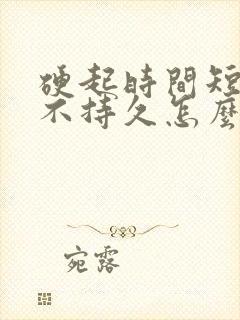 硬起時間短
不持久怎麼
宛露